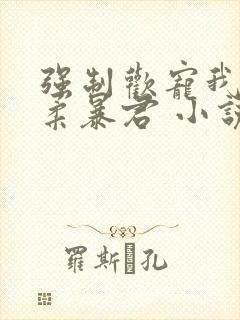 强制歡寵我
柔暴君 小說
羅斯 孔